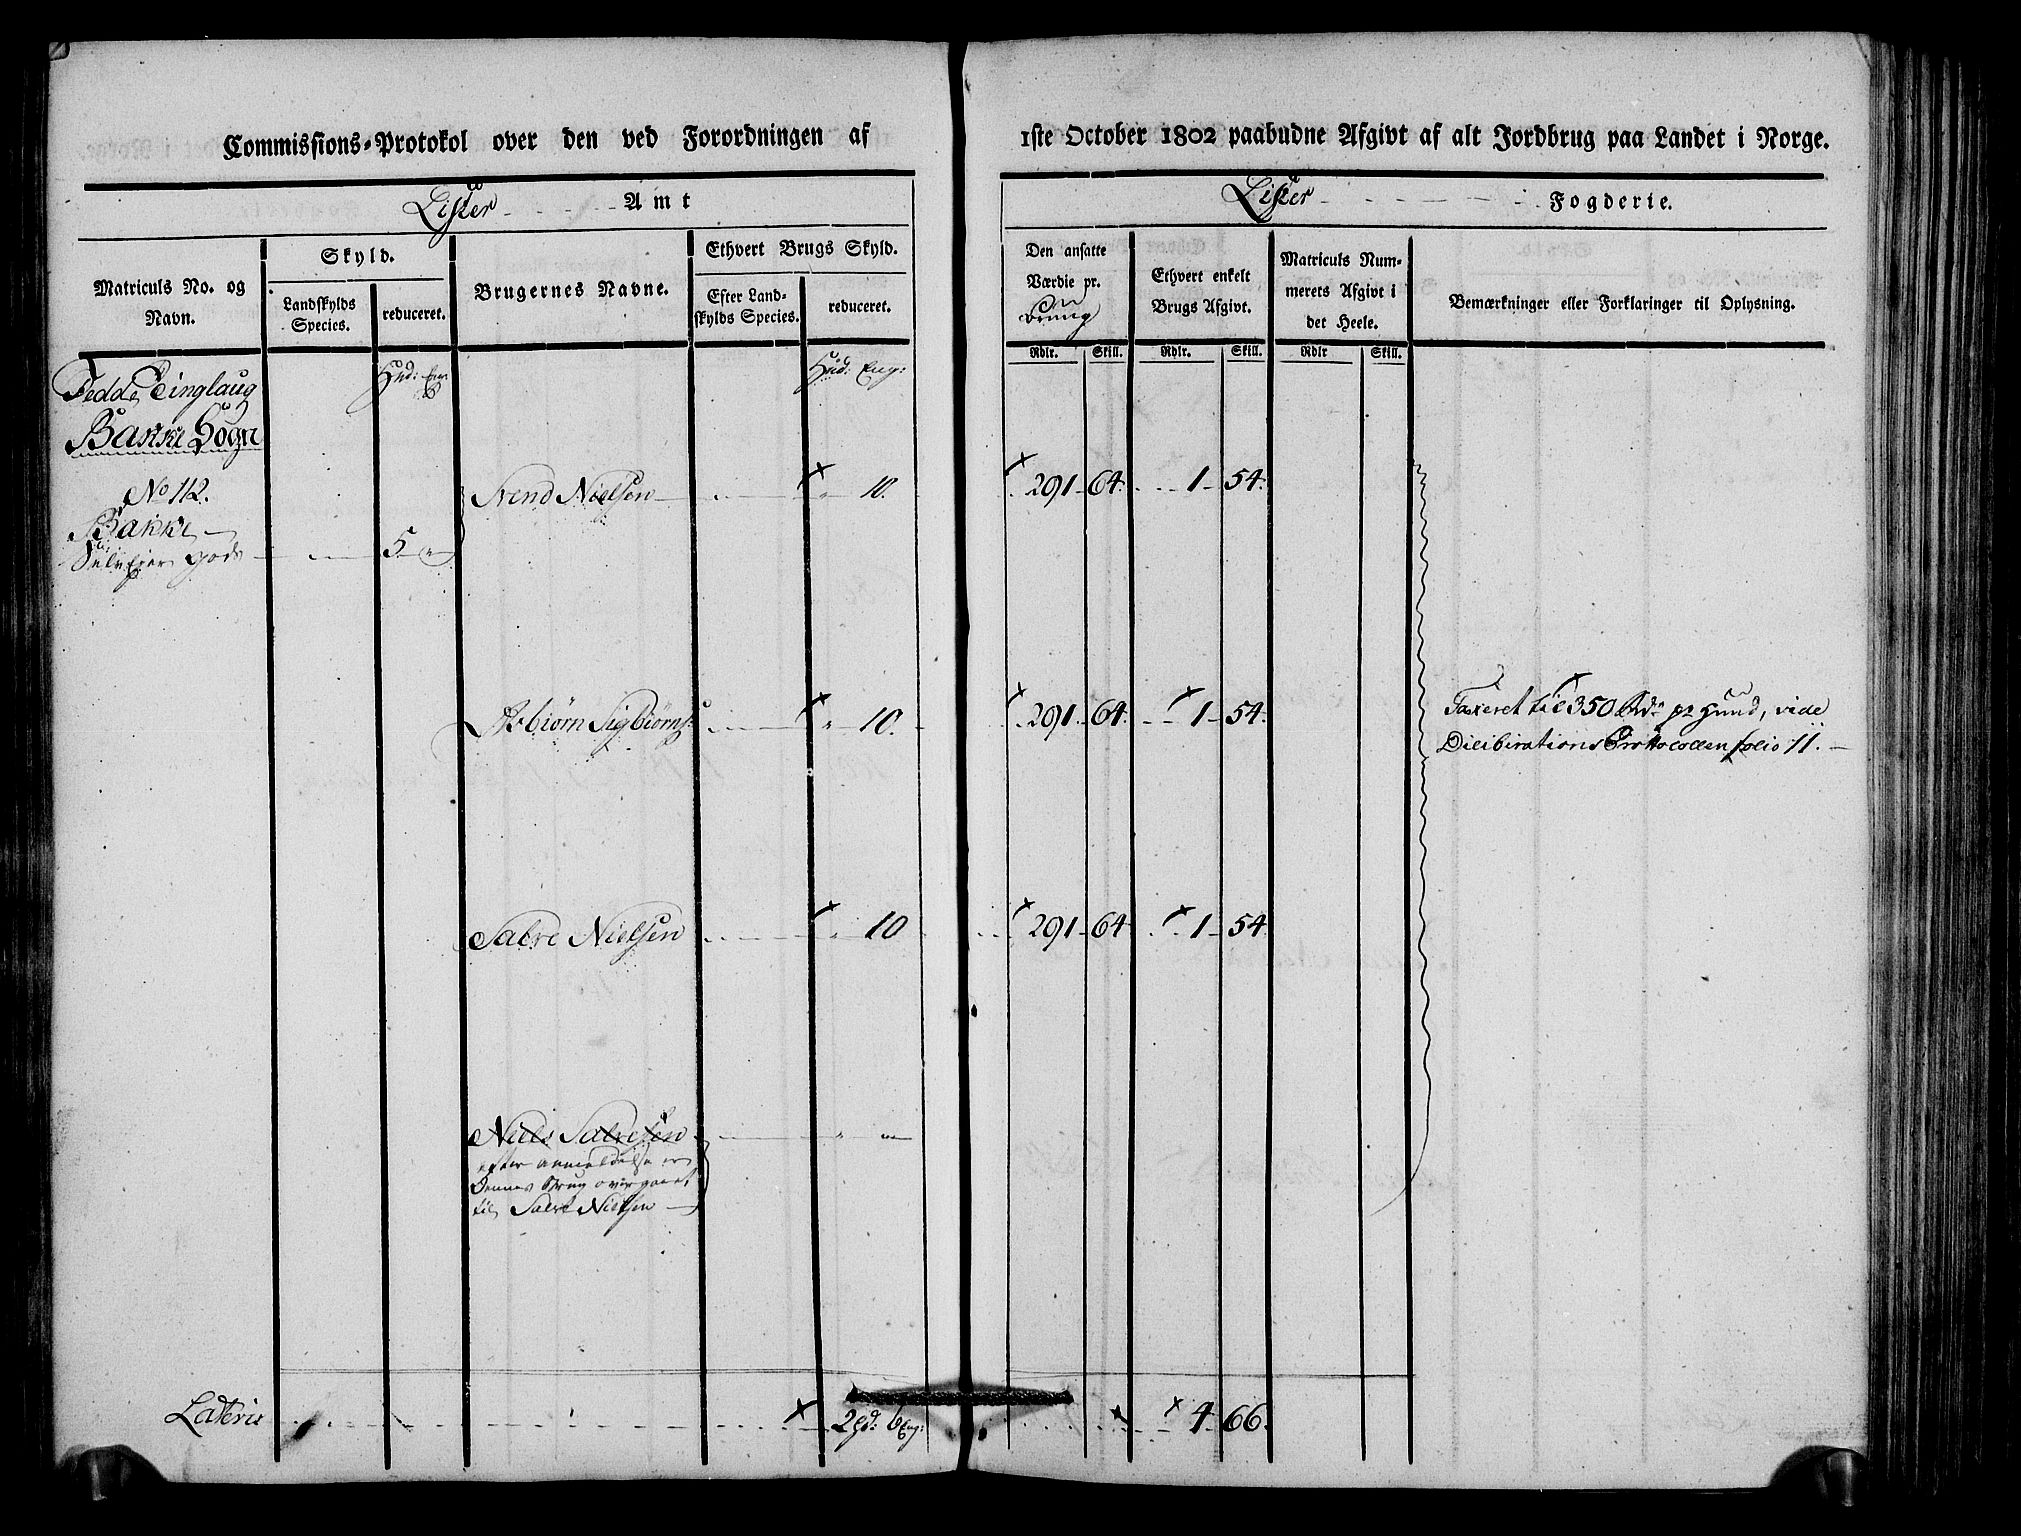 Commissions-Protokol over den ved Forordningen af 1ste October 1802 paabudne Afgivt af alt Jordbrug paa Landet i Norge.
Lister Amt
Lister Fogderie.
Matriculs No. og Navn.
Skyld.
Landskylds Species.
reduceret.
Brugernes Navne.
Ethvert Brugs Skyld.
Efter Landskylds Species.
reduceret.
Den ansatte Værdie pr. Brug
Ethvert enkelt Brugs Afgivt.
Matriculs Nummerets Afgivt i det Heele.
Bemærkninger eller Forklaringer til Oplysning.
Rdlr. Skill. Rdlr. Skill. Rdlr Skill.
Fedde Tinglaug
Hud: Eng:
Hud: Eng:
Bakke Sogn
No 112.
Svend Nielsen 10. 291 64. 1 54.
Bakke
Selveier gods 5
Asbiørn Sigbiørns: 10. 291. 64. 1 54.
Taxeret til 350 Rdr pr Huud, vide
Deliberations Protocollen folio 11.
Salve Nielsen 10 291 64 1 54.
Niels Salvesen
efter anmeldelse er
Dennes Brug overgaaet
til Salve Nielsen
Lateris 2 Hd: 6 Eng: 4 66.